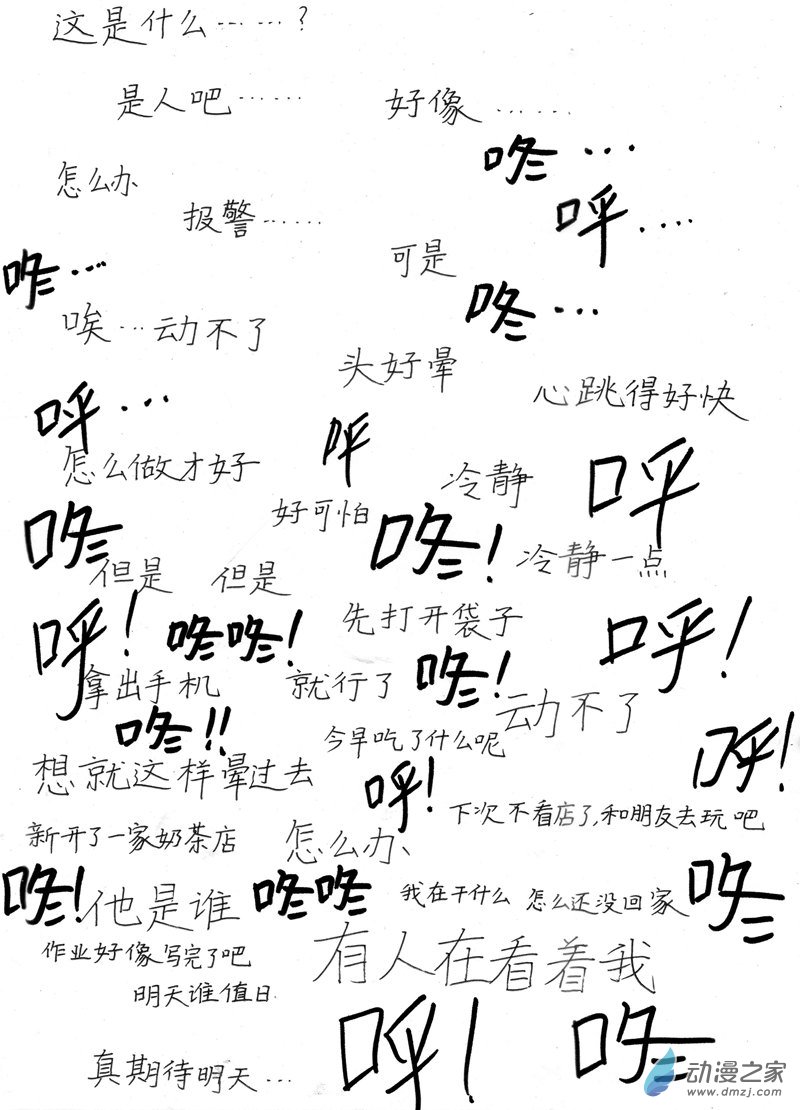 这是什么……?
是人吧……
好像……
咚…
怎么办
报警……
呼....
咚…
可是
咚…
唉…动不了
头好晕
心跳得好快
呼…
呼
怎么做才好
冷静
呼
好可怕
咚
咚!
冷静一点
但是 但是
呼!
咚咚!
先打开袋子
呼!
拿出手机
就行了
咚!
动不了
咚!!
今早吃了什么呢
呼!
想就这样晕过去
呼!
下次不看店了,和朋友去玩吧
新开了一家奶茶店
怎么办、
咚!
他是谁
咚咚
我在干什么
怎么还没回家
咚
作业好像写完了吧
有人在看着我
明天谁值日
呼!
咚
真期待明天…
动漫之家
www.dmzj.com